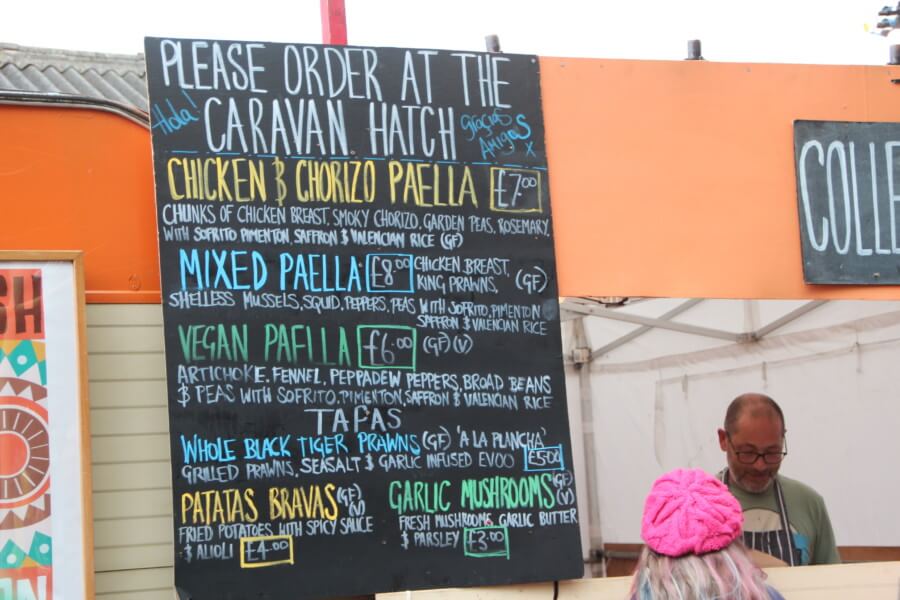 PLEASE ORDER AT THE
Hola! CARAVAN HATCH Graçias Amigos x
CHICKEN & CHORIZO PAELLA £7.00
CHUNKS OF CHICKEN BREAST, SMOKY CHORIZO, GARDEN PEAS, ROSEMARY,
WITH SOFRITO PIMENTON, SAFFRON & VALENCIAN RICE (GF)
MIXED PAELLA £8.00 CHICKEN BREAST,
KING PRAWNS, (GF)
SHELLESS MUSSELS, SQUID, PEPPERS, PEAS WITH SOFRITO, PIMENTON
SAFFRON & VALENCIAN RICE
VEGAN PAELLA £6.00 (GF) (V)
ARTICHOKE, FENNEL, PEPPADEW PEPPERS, BROAD BEANS
& PEAS WITH SOFRITO, PIMENTON, SAFFRON & VALENCIAN RICE
TAPAS
WHOLE BLACK TIGER PRAWNS (GF) 'A LA PLANCHA'
GRILLED PRAWNS, SEASALT & GARLIC INFUSED EVOO £5.00
PATATAS BRAVAS (GF) (V)
FRIED POTATOES WITH SPICY SAUCE
& ALIOLI £4.00
GARLIC MUSHROOMS (GF) (V)
FRESH MUSHROOMS, GARLIC BUTTER
& PARSLEY £3.00
COLLE
SH
ON